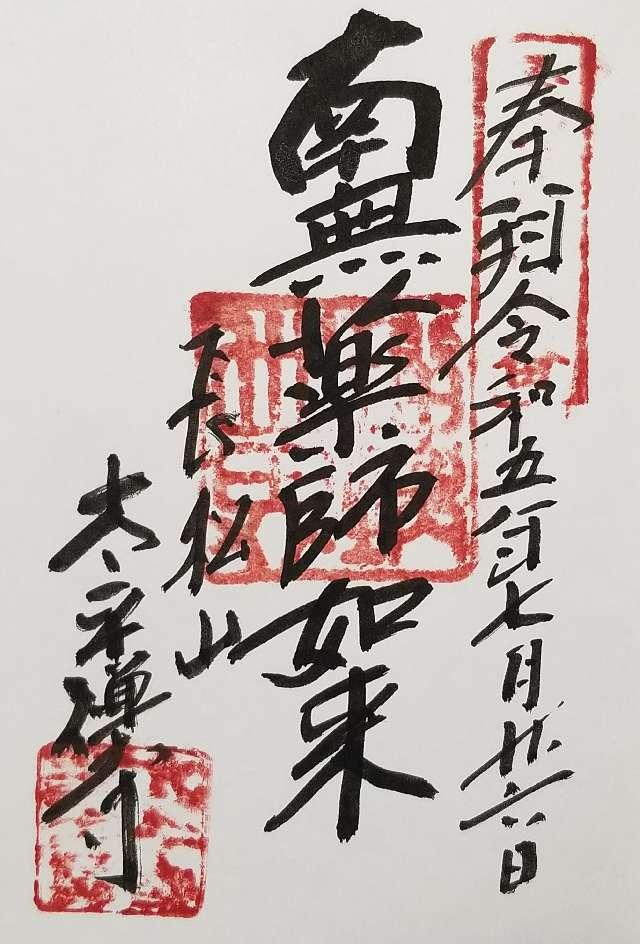 奉拝令和五年七月廿六日
南無薬師如来
長松山
太宗禅寺